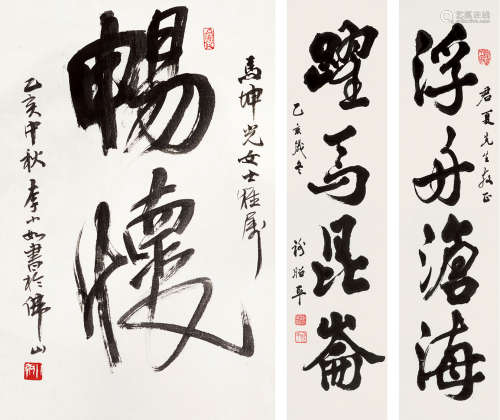 君夏先生教正
浮舟滄海
躍馬昆崙
乙亥歲冬
馬坤光女士雅属
暢懷
乙亥中秋李小如書於佛山